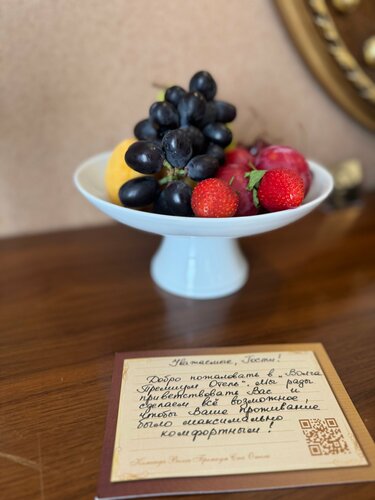 Уважаемые, Гости!
Добро пожаловать в „Волга
Премиум Отель". Мы рады
приветствовать Вас и
сделаем всё возможное,
чтобы Ваше проживание
было максимально
комфортным!
Команда Волга Премиум Спа Отель